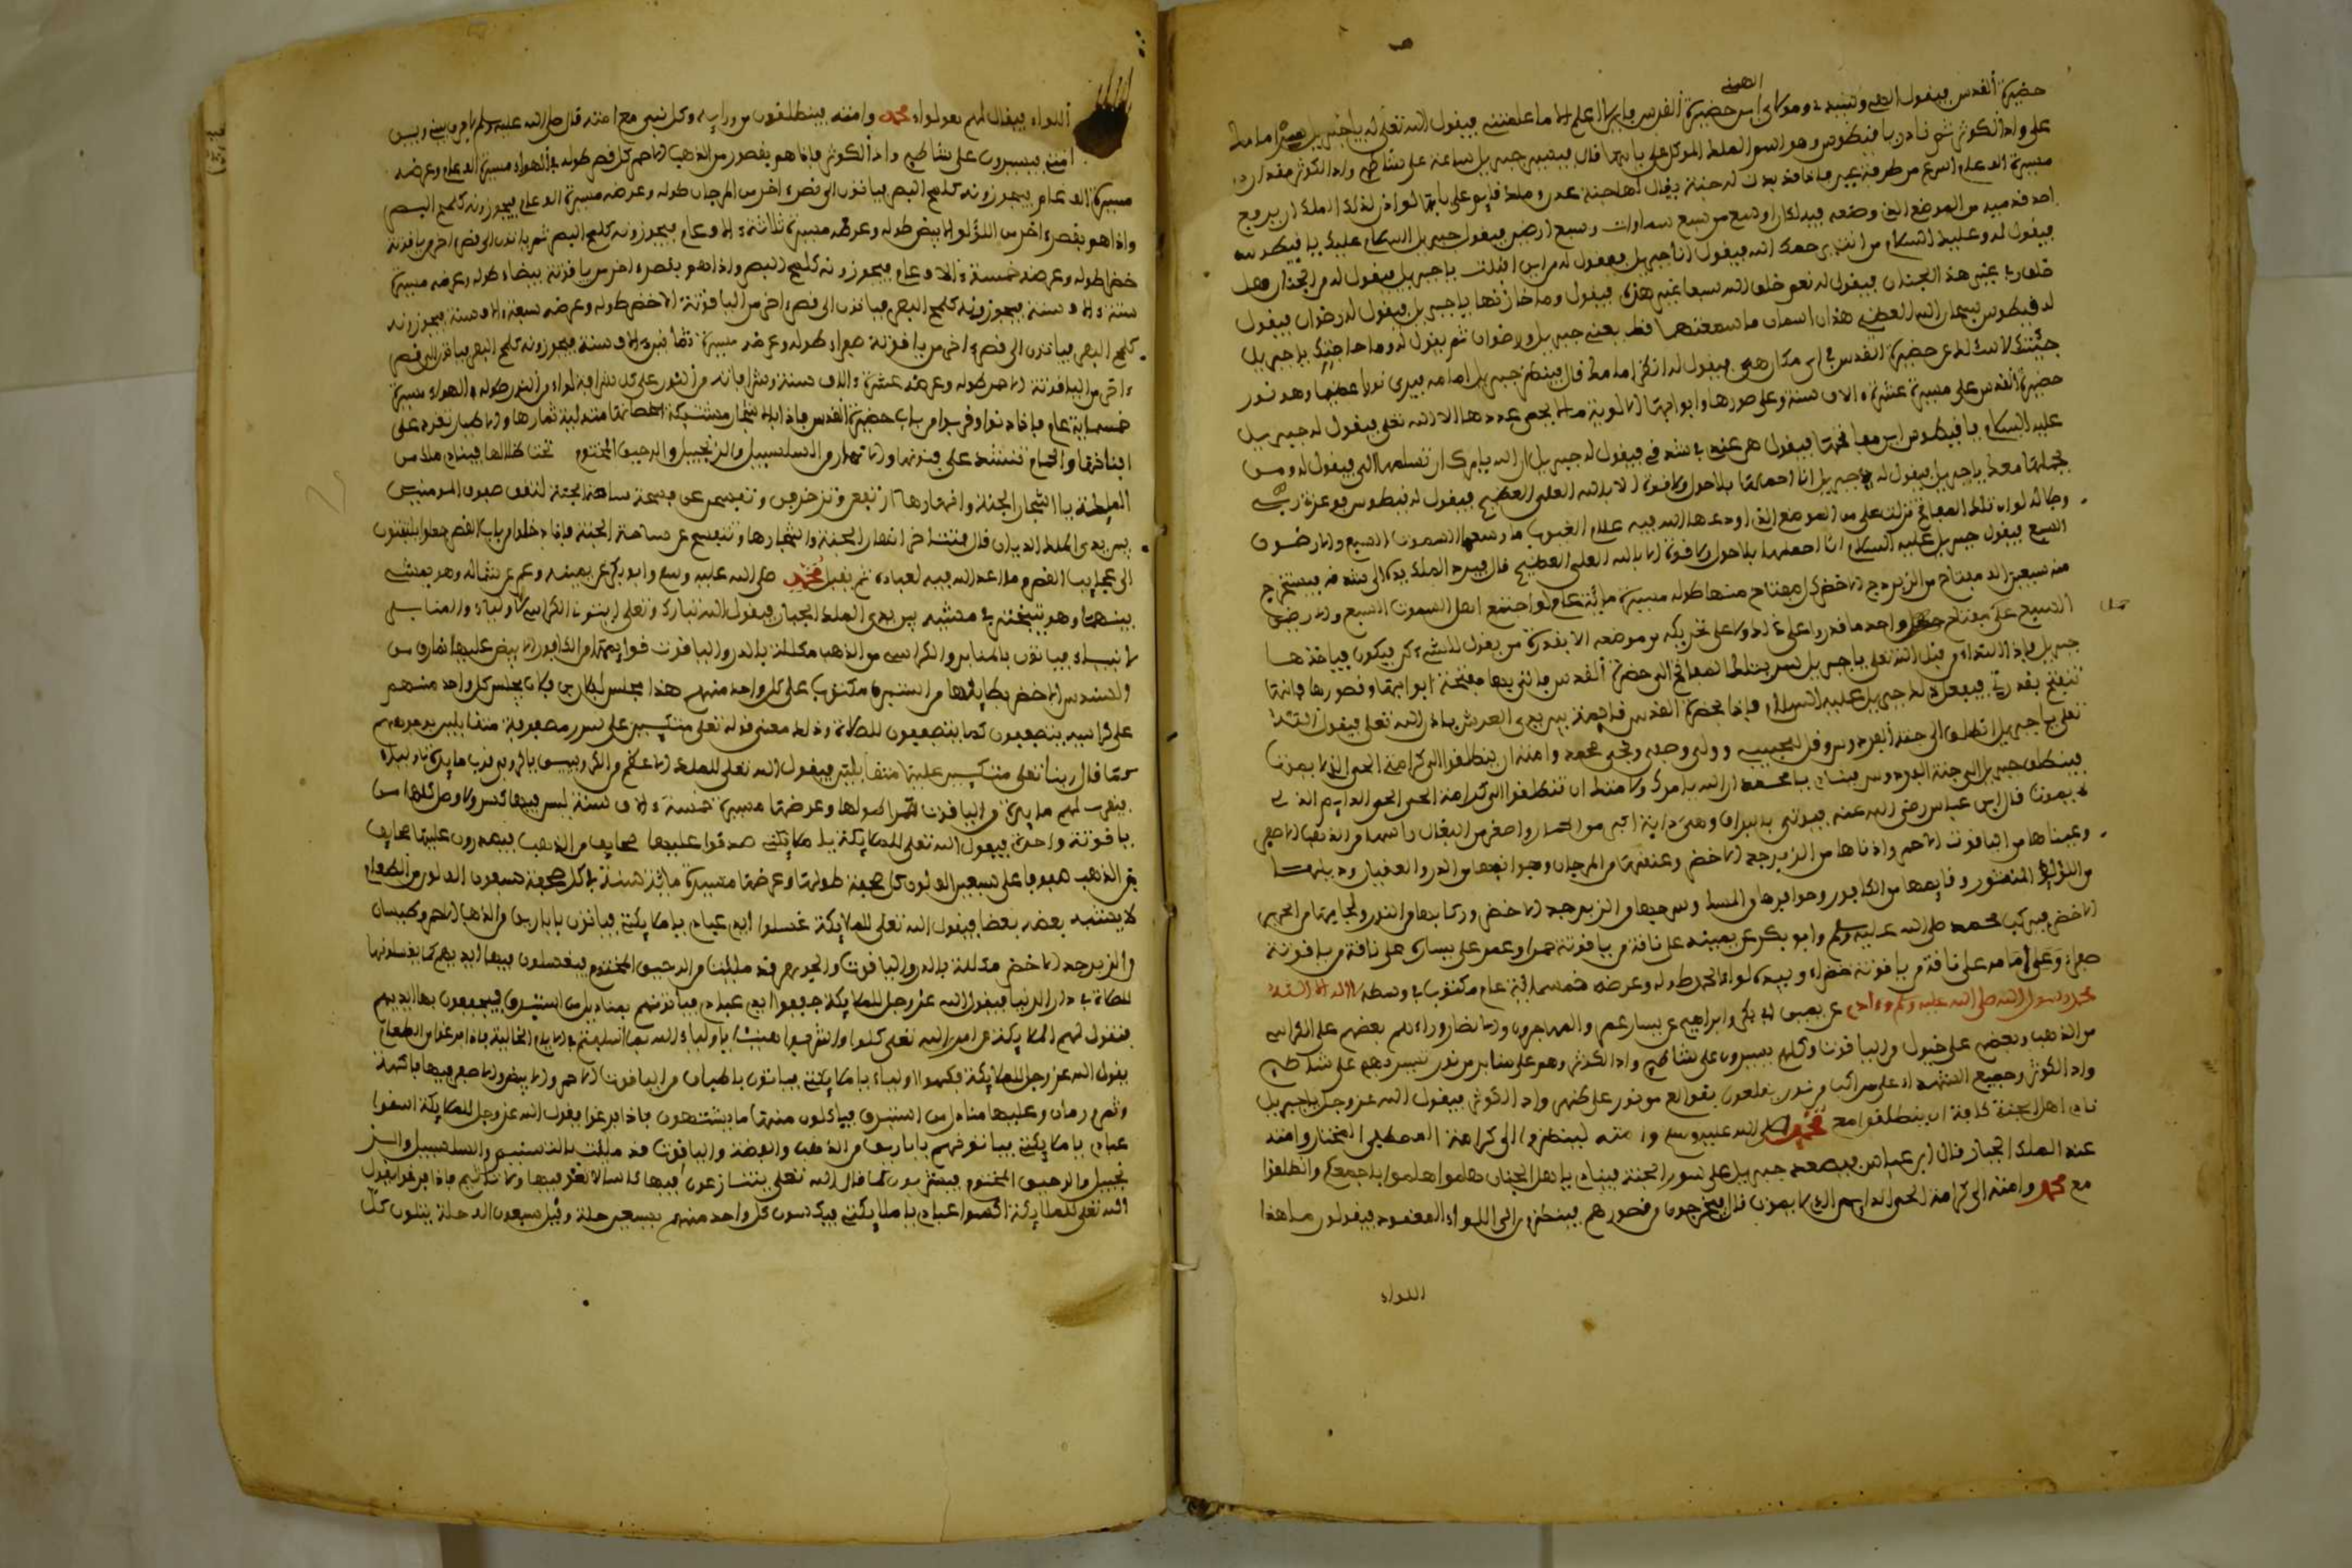 الاهي
حضيرة القدس فيقول الهي وسيدي ومولاي اين حضيرة القدس فاني لا اعلم الا ما علمتني فيقول الله تعلى له يا جبريل سر امامك
على واد الكوثر ثم ناد يا فيطوس وهو اسم الملك الموكل على بابها قال فيسير جبريل ساعة على شاطئ واد الكوثر مقدار
مسيرة الف عام اسرع من طرفة عين فاذا قد بدت له جنة يقال لها جنة عدن وملك قايم على بابها لو اذن لذلك الملك ان يرفع
احد قدميه من الموضع الذي وضعه فيه لكان اوسع من سبع سماوات وسبع ارضين فيقول جبريل السلام عليك يا فيطوس
فيقول له وعليك السلام من انت يرحمك الله فيقول انا جبريل فيقول له من اين اقبلت يا جبريل فيقول له من الجنان
خلق ربي غير هذه الجنان فيقول له نعم خلق الله سبعا غير هذه فيقول وما خازنها يا جبريل فيقول له رضوان فيقول
له فيطوس سبحان الله العظيم هذان اسمان ما سمعتهما قط يعني جبريل ورضوان ثم يقول له وما حاجتك يا جبريل
جئتك لاسئلك عن حضيرة القدس في اي مكان هي فيقول له انظر امامك قال فينظر جبريل امامه فيرى نورا عظيما وهو نور
حضيرة القدس على مسيرة عشرة ءالاف سنة وعلى سورها وابوابها الالوية ما لا يحصي عددها الا الله تعلى فيقول له جبريل
عليه السلام يا فيطوس اين مفاتحها فيقول هي عندي في شدقي فيقول له جبريل ان الله يامرك ان تسلمها الي فيقول له ومن
يحملها معك يا جبريل فيقول له جبريل انا احملها بلا حول ولا قوة الا بالله العلي العظيم فيقول له فيطوس فوعزة ربي
وجلاله لو ان تلك المفاتح نزلت على من الموضع الذي اودعها الله فيه علام الغيوب ما وسعها السموات السبع والارضون
السبع فيقول جبريل عليه السلام انا احملها بلا حول ولا قوة الا بالله العلي العظيم قال فيرد الملك يده الى شدقه فيستخرج
منه سبعين الف مفتاح من الزبرجد الاخضر كل مفتاح منها طوله مسيرة مائة عام لو اجتمع اهل السموات السبع والارضين
السبع على مفتاح واحد ما قدروا على ذلك ولا على تحريكه من موضعه الا بقدرة من يقول للشيء كن فيكون فياخذها
جبريل فاذا النداء من قبل الله تعلى يا جبريل سر بتلك المفاتح الى حضيرة القدس
تفتح بقدرتي فيفعل ذلك جبريل عليه السلام فاذا بحضيرة القدس قائمة بين يدي العرش باذن الله تعلى فيقول الله
تعلى يا جبريل انطلق الى جنة الفردوس وقل لحبيبي وولي وصفي ونجي محمد وامته ان ينطلقوا الى كرامة الحي الذي لا يموت
فينطلق جبريل الى جنة الفردوس فينادي يا محمد ان الله يامرك وامتك ان تنطلقوا الى كرامة الحي الدايم الذي
لا يموت قال ابن عباس رضي الله عنه فيوتى بالبراق وهي دابة اكبر من الحمار واصغر من البغال راسها من الذهب الاحمر
وعيناها من الياقوت الاحمر واذناها من الزبرجد الاخضر وعنقها من المرجان
من اللؤلؤ المنثور وقايمها من الكافور وحوافرها من المسك وسرجها من الزبرجد الاخضر وركابها من النور ولجامها من الحرير
الاخضر فيركب محمد صلى الله عليه وسلم وابو بكر عن يمينه على ناقة من ياقوتة حمرا وعمر على يساره على ناقة من ياقوتة
صفراء وعلي امامه على ناقة من ياقوتة خضراء وبيده لواء الحمد طوله وعرضه خمسمائة عام مكتوب في وسطه لا اله الا الله
محمد رسول الله صلى الله عليه وسلم وءادم عن يمين ابي بكر وابراهيم عن يسار عمر والمهاجرون والانصار وراءهم بعضهم على الكراسي
من الذهب وبعضهم على خيول من الياقوت وكلهم يسيرون على شاطئ واد الكوثر وهم على منابر من نور تسير بهم على شاطئ
واد الكوثر وجميع الشهداء على مراكب من نور يقلعون بقوالع من نور على نهر واد الكوثر فيقول الله عز وجل يا جبريل
ناد اهل الجنة كافة ان ينطلقوا مع محمد صلى الله عليه وسلم وامته لينظروا الى كرامة المصطفى المختار وامته
عند الملك الجبار قال ابن عباس فيصعد جبريل على سور الجنة فينادي يا اهل الجنان هلموا هلموا باجمعكم وانطلقوا
مع محمد وامته الى كرامة الحي الدايم الذي لا يموت قال فيخرجون من قصورهم فينظرون الى اللواء المعقود فيقولون ما هذا
اللواء
اللواء فيقال لهم هو لواء محمد وامته فينطلقون من ورايه وكل نبي مع امته قال صلى الله عليه وسلم
امتي فيسيرون على شاطئ واد الكوثر فاذا هو بقصور من الذهب الاحمر كل قصر طوله في الهواء مسيرة الف عام وعرضه
مسيرة الف عام فيجوزونه كلمح البصر فياتون الى قصر ءاخر من المرجان طوله وعرضه مسيرة الف عام فيجوزونه كلمح البصر
واذا هو بقصر ءاخر من اللؤلؤ الابيض طوله وعرضه مسيرة ثلاثة ءالاف عام فيجوزونه كلمح البصر ثم ياتون الى قصر ءاخر من ياقوتة
خضرا طوله وعرضه خمسة ءالاف عام فيجوزونه كلمح البصر واذا هو بقصر ءاخر من ياقوتة بيضاء طوله وعرضه مسيرة
ستة ءالاف سنة فيجوزونه كلمح البصر فياتون الى قصر ءاخر من الياقوتة الاخضر طوله وعرضه سبعة ءالاف سنة فيجوزونه
كلمح البصر فياتون الى قصر ءاخر من ياقوتة صفراء طوله وعرضه مسيرة ثمانية ءالاف سنة فيجوزونه كلمح البصر فياتون الى قصر
ءاخر من الياقوتة الاحمر طوله وعرضه عشرة ءالاف سنة وشرافاته من النور على كل شرافة لواء من النور طوله في الهواء مسيرة
خمسمائة عام فاذا دنوا وقربوا من باب حضيرة القدس فاذا باشجار مشتبكة اغصانها متدلية ثمارها والاطيار تغرد على
افنانها والحمام تنشد على فنونها والانهار من السلسبيل والزنجبيل والرحيق المختوم تحت ظلالها فينادي ملك من
الملايكة يا اشجار الجنة وانهارها ازتفع وتزخرفي وتفسحي عن فسحة ساحة الجنة لتقف صفوف المومنين
بين يدي الملك الديان قال فتتاخر انهار الجنة واشجارها وتتفسح عن ساحة الجنة فاذا دخلوا من باب القصر جعلوا يلتفتون
الى عجايب القصر وما اعد الله فيه لعباده ثم يقبل محمد صلى الله عليه وسلم وابو بكر عن يمينه وعمر عن شماله وهو يمشي
بينهما وهو يتبختر في مشيته بين يدي الملك الجبار فيقول الله تبارك وتعلى ايتوا بالكراسي لاوليائي والمنابر
لانبيائي فياتون بالمنابر والكراسي من الذهب مكللة بالدر والياقوت قوايمها من الكافور الابيض عليها نمارق من
والسندس الاخضر بطاينها من استبرق مكتوب على كل واحد منهم هذا مجلس فلان بن فلان يجلس كل واحد منهم
على كراسيه يتصففون كما يتصففون للصلاة وذلك معنى قوله تعلى متكيين على سرر مصفوفة متقابلين بوجوههم
كما قال ربنا تعلى متكيين عليها متقابلين فيقول الله تعلى للملك
فيقرب لهم مايدة من الياقوت الاحمر طولها وعرضها مسيرة خمسة ءالاف سنة ليس فيها كسر ولا وصل كلها من
ياقوتة واحدة فيقول الله تعلى للملايكة يا ملايكتي صففوا عليها صحايف من الذهب فيصففون عليها صحايف
من الذهب صفوفا على سبعين الف لون كل صحفة طولها وعرضها مسيرة مائة سنة في كل صحفة سبعون الف لون من الطعام
لا يشبه بعضه بعضا فيقول الله تعلى للملايكة غسلوا ايدي عبادي يا ملايكتي فياتون باباريق من الذهب الاحمر وطيسان
والزبرجد الاخضر مكللة بالدر والياقوت والجوهر قد مليت من الرحيق المختوم فيغسلون فيها ايديهم كما يغسلونها
للصلاة في دار الدنيا فيقول الله عز وجل للملايكة جففوا ايدي عبادي فياتونهم بمناديل من استبرق فيجففون بها ايديهم
فتقول لهم الملايكة عن امر الله تعلى كلوا واشربوا هنيئا يا اولياء الله بما اسلفتم في الايام الخالية فاذا فرغوا من الطعام
يقول الله عز وجل للملايكة فكهوا اوليائي يا ملايكتي فياتون باطباق من الياقوت الاحمر والابيض والاصفر فيها فاكهة
وثمر ورمان وعليها مناديل من استبرق فياكلون منها ما يشتهون فاذا فرغوا يقول الله عز وجل للملايكة اسقوا
عبادي يا ملايكتي فياتونهم باباريق من الذهب والفضة والياقوت قد مليت بالتسنيم والسلسبيل والز
نجبيل والرحيق المختوم فيشربون كما قال الله تعلى يتنازعون فيها كاسا لا لغو فيها ولا تاثيم فاذا فرغوا يقول
الله تعلى للملايكة اكسوا عبادي يا ملايكتي فيكسون كل واحد منهم بسبعين حلة وقيل سبعون الف حلة يتلون كل